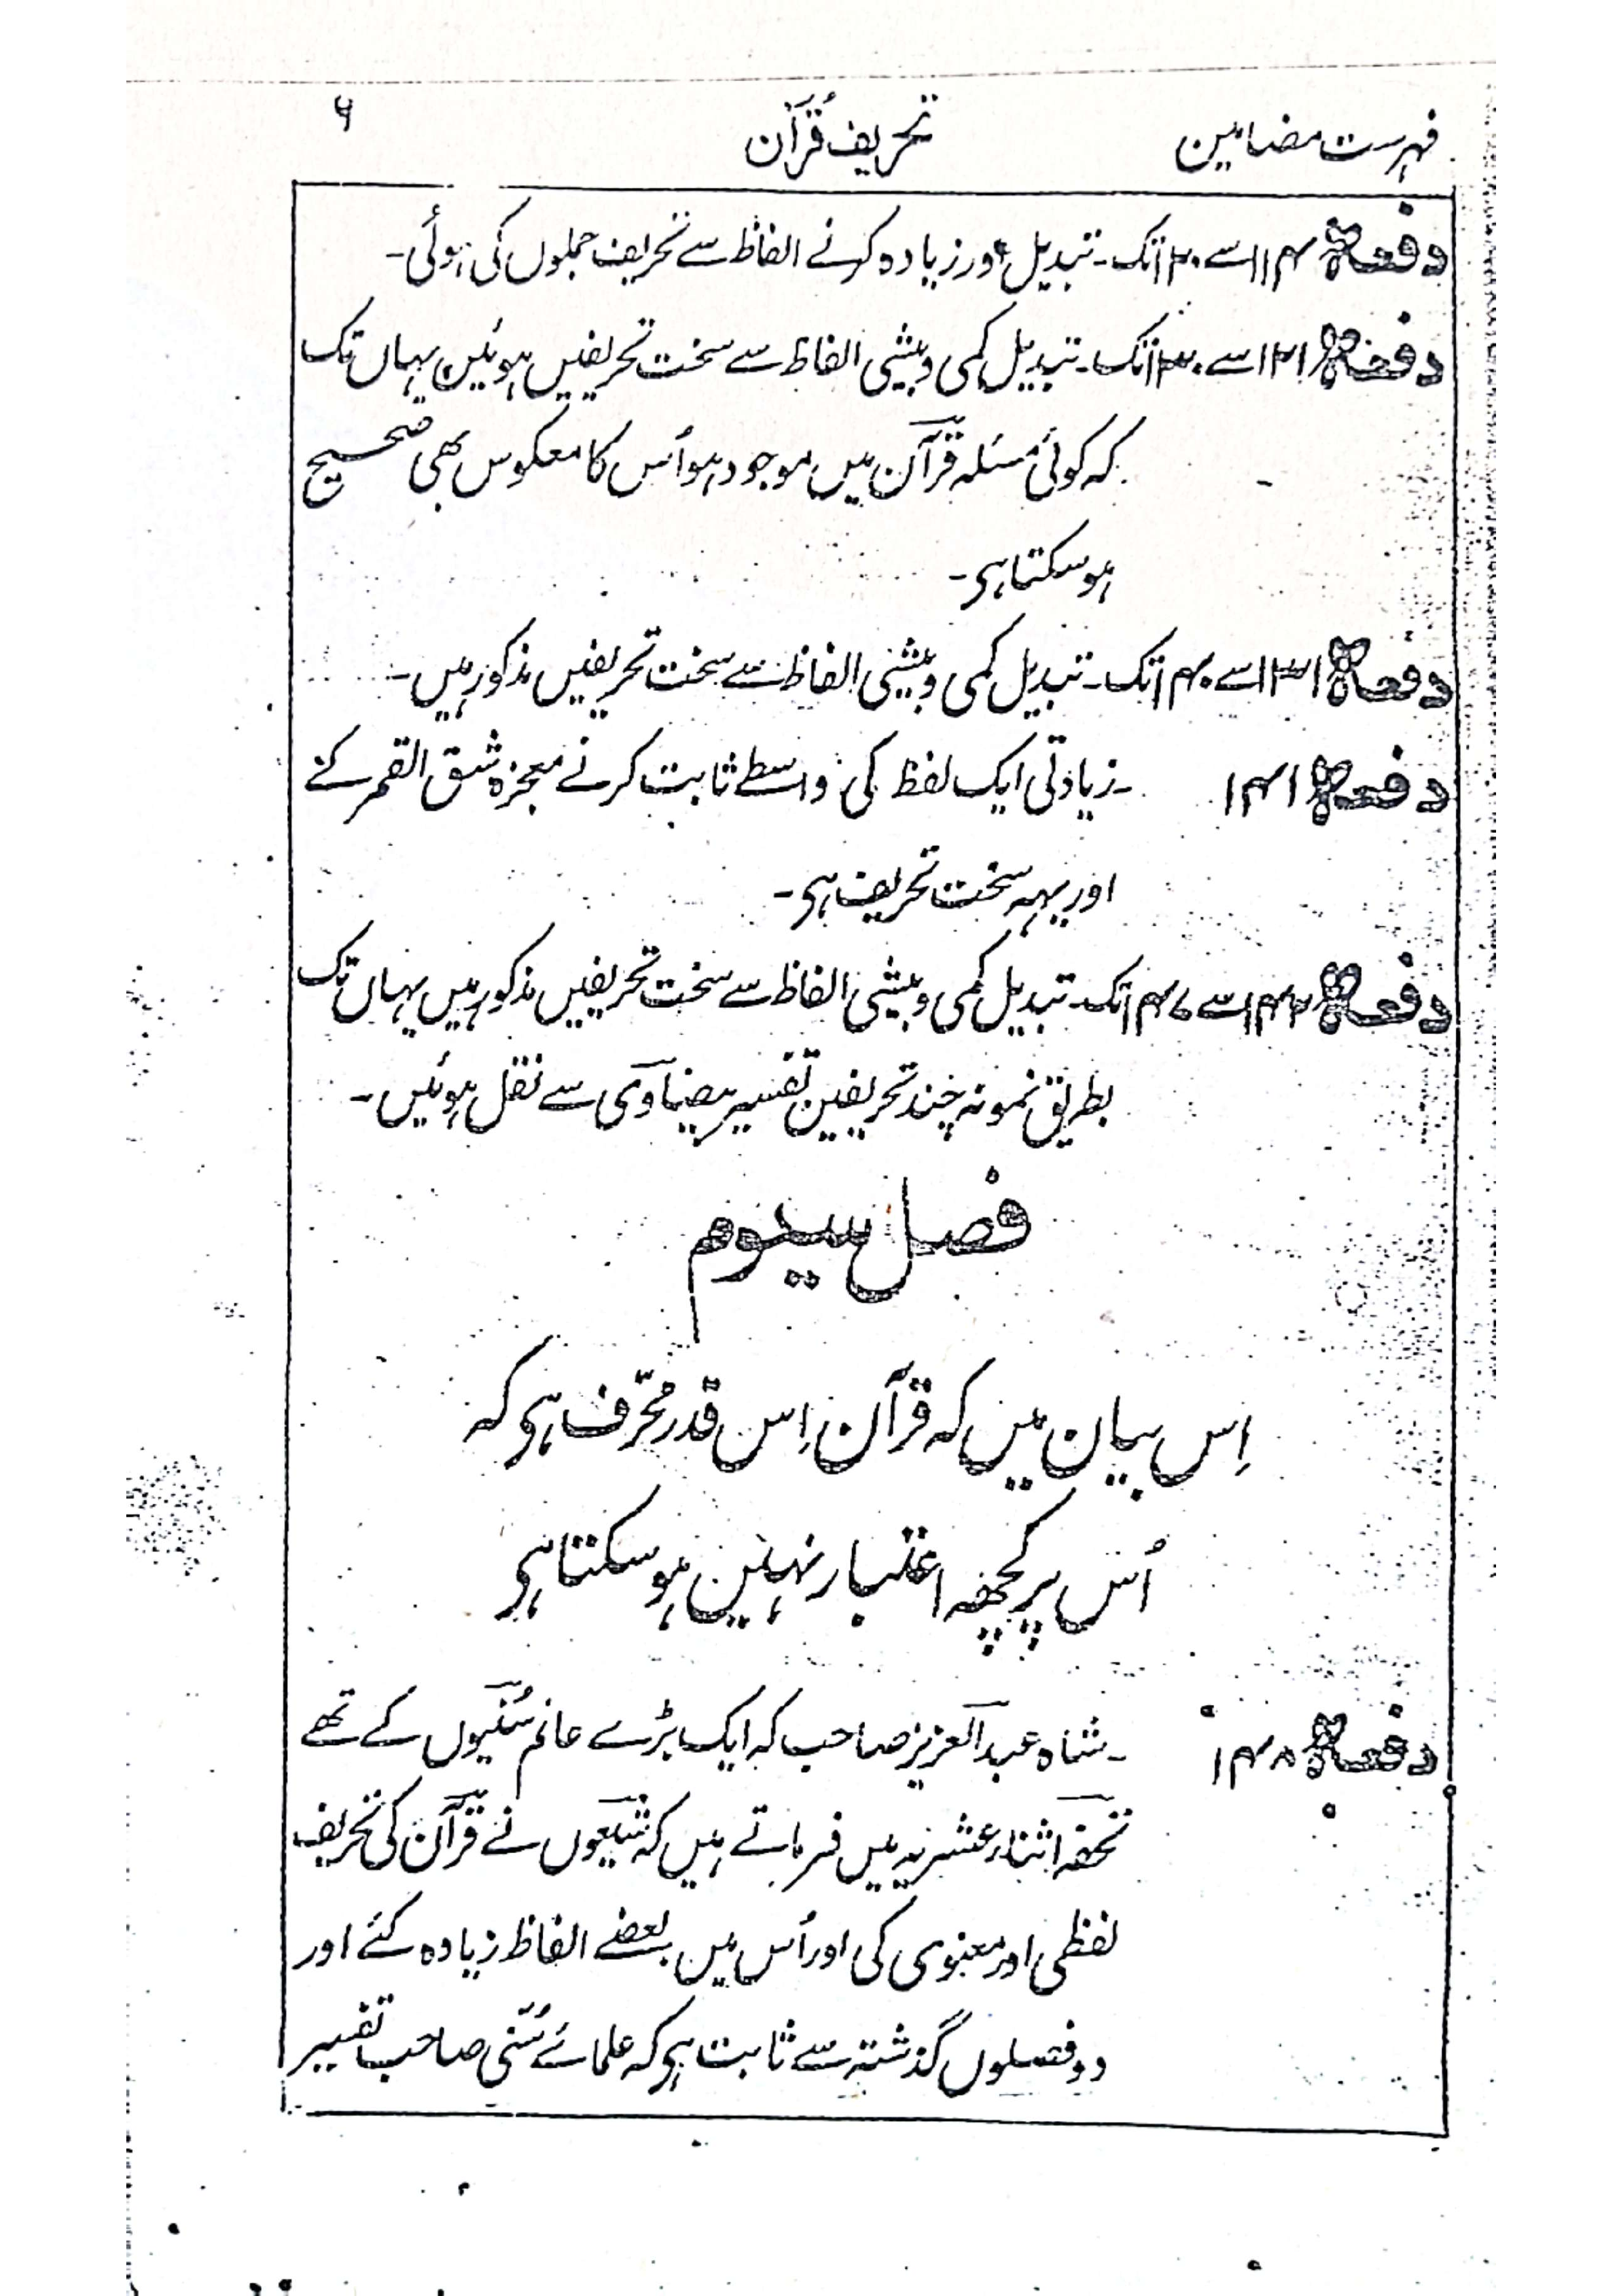 فہرست مضامین تحریف قُرآن ۶
دفعہ ۱۱۴ سے ۱۲۰ تک۔ تبدیل اور زیادہ کرنے الفاظ سے تحریف جملوں کی ہوئی۔
دفعہ ۱۲۱ سے ۱۳۰ تک۔ تبدیل کمی و بیشی الفاظ سے سخت تحریفیں ہوئیں یہاں تک
کہ کوئی مسئلہ قرآن میں موجود ہو اُس کا معکوس بھی صحیح
ہو سکتا ہی۔
دفعہ ۱۳۱ سے ۱۴۰ تک۔ تبدیل کمی و بیشی الفاظ سے سخت تحریفیں مذکور ہیں۔
دفعہ ۱۴۱ ۔ زیادتی ایک لفظ کی واسطے ثابت کرنے معجزہ شق القمر کے
اور یہہ سخت تحریف ہی۔
دفعہ ۱۴۲ سے ۱۴۷ تک۔ تبدیل کمی و بیشی الفاظ سے سخت تحریفیں مذکور ہیں یہاں تک
بطریق نمونہ چند تحریفین تفسیر بیضاوی سے نقل ہوئیں۔
فصل سیوم
اِس بیان میں کہ قرآن اِس قدر مُحرّف ہی کہ
اُس پر کچھہ اعتبار نہیں ہو سکتا ہی
دفعہ ۱۴۸ ۔ شاہ عبد العزیز صاحب کہ ایک بڑے عالم سُنّیوں کے تھے
تحفہ اثناء عشریہ میں فرماتے ہیں کہ شیعوں نے قرآن کی تحریف
لفظی اور معنوی کی اور اُس میں بعضے الفاظ زیادہ کئے اور
دو فصلوں گذشتہ سے ثابت ہی کہ علمائے سُنّی صاحب تفسیر